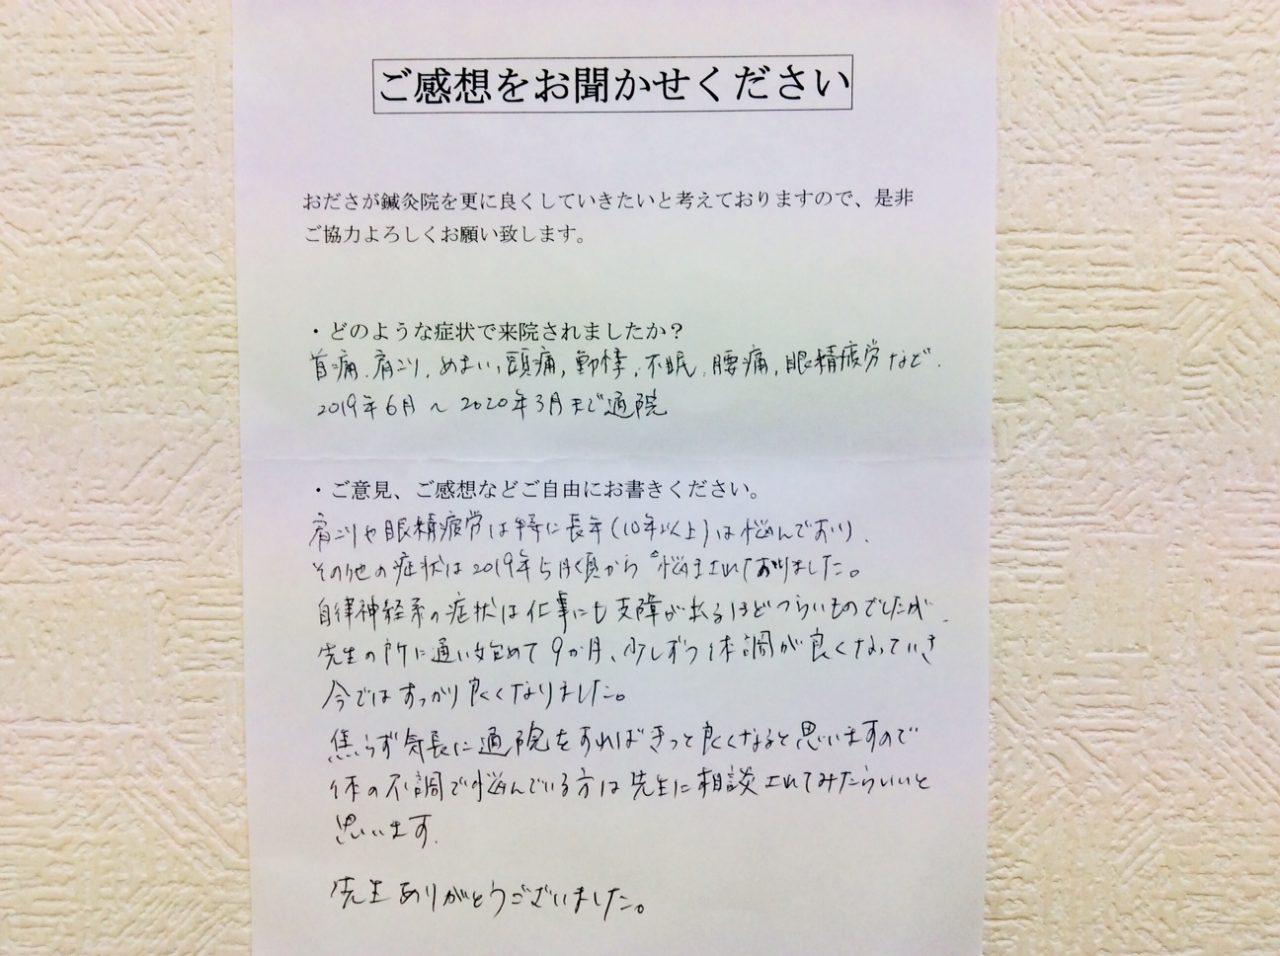 ご感想をお聞かせください
おださが鍼灸院を更に良くしていきたいと考えておりますので、是非
ご協力よろしくお願い致します。
・どのような症状で来院されましたか？
首痛、肩こり、めまい、頭痛、動悸、不眠、腰痛、眼精疲労など.
2019年6月～2020年3月まで通院
・ご意見、ご感想などご自由にお書きください。
肩こりや眼精疲労は特に長年(10年以上)は悩んでおり、
その他の症状は2019年5月頃から悩まされておりました。
自律神経系の症状は仕事にも支障が出るほどつらいものでしたが、
先生の所に通い始めて9か月、少しずつ体調が良くなっていき
今ではすっかり良くなりました。
焦らず気長に通院をすればきっと良くなると思いますので
体の不調で悩んでいる方は先生に相談されてみたらいいと
思います.
先生ありがとうございました。